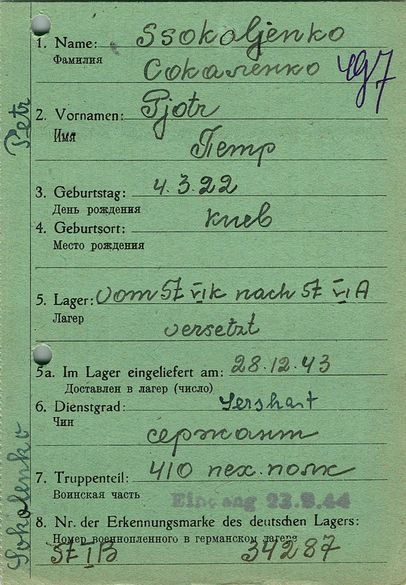 1. Name: Ssokoljenko
Фамилия
Сокаленко
497
2. Vornamen: Pjotr
Имя
Петр
3. Geburtstag: 4.3.22
День рождения
4. Geburtsort: киев
Место рождения
5. Lager: vom St VIK nach St VI A
Лагер
versetzt
5a. Im Lager eingeliefert am: 28.12.43
Доставлен в лагер (число)
6. Dienstgrad: Sershant
Чин
сержант
7. Truppenteil: 410 пех. полк
Воинская часть
Eingang 23.9.44
8. Nr. der Erkennungsmarke des deutschen Lagers:
Номер военнопленного в германском лагере
St II B 34287
Sokolenko
Petr